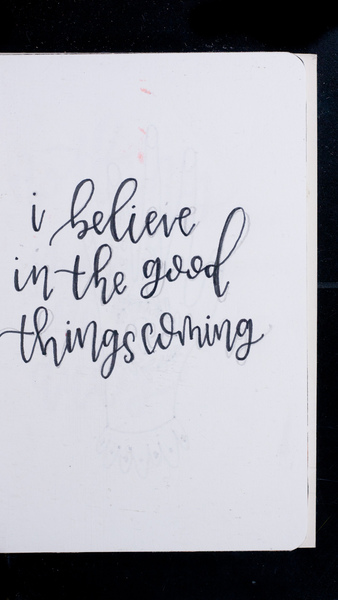 i believe
in the good
things coming